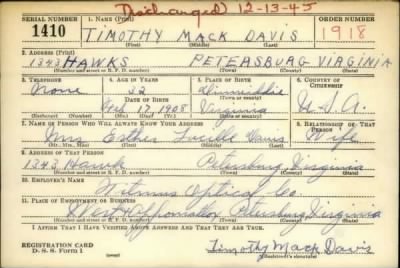 (Discharged) 12-13-45
SERIAL NUMBER 1. NAME (Print) ORDER NUMBER
1410 TIMOTHY MACK DAVIS 1918
(First) (Middle) (Last)
2. ADDRESS (Print)
1343 HAWKS PETEASBURG VIRGINIA
(Number and street or R. F. D. number) (Town) (County) (State)
3. TELEPHONE 4. AGE IN YEARS 5. PLACE OF BIRTH 6. COUNTRY OF CITIZENSHIP
None 32 Dinwiddie
DATE OF BIRTH (Town or county)
Feb. 17 1908 Virginia U.S.A.
(Mo.) (Day) (Yr.) (State or country)
7. NAME OF PERSON WHO WILL ALWAYS KNOW YOUR ADDRESS 8. RELATIONSHIP OF THAT PERSON
Mrs Esther Lucille Davis Wife
(Mr., Mrs., Miss) (First) (Middle) (Last)
9. ADDRESS OF THAT PERSON
1343 Hawk Petersburg, Virginia
(Number and street or R. F. D. number) (Town) (County) (State)
10. EMPLOYER'S NAME
Titmus Optical Co
11. PLACE OF EMPLOYMENT OR BUSINESS
West & Appomattox Petersburg Virginia
(Number and street or R. F. D. number) (Town) (County) (State)
I AFFIRM THAT I HAVE VERIFIED ABOVE ANSWERS AND THAT THEY ARE TRUE.
REGISTRATION CARD
D. S. S. Form 1 Timothy Mack Davis
(Registrant's signature)